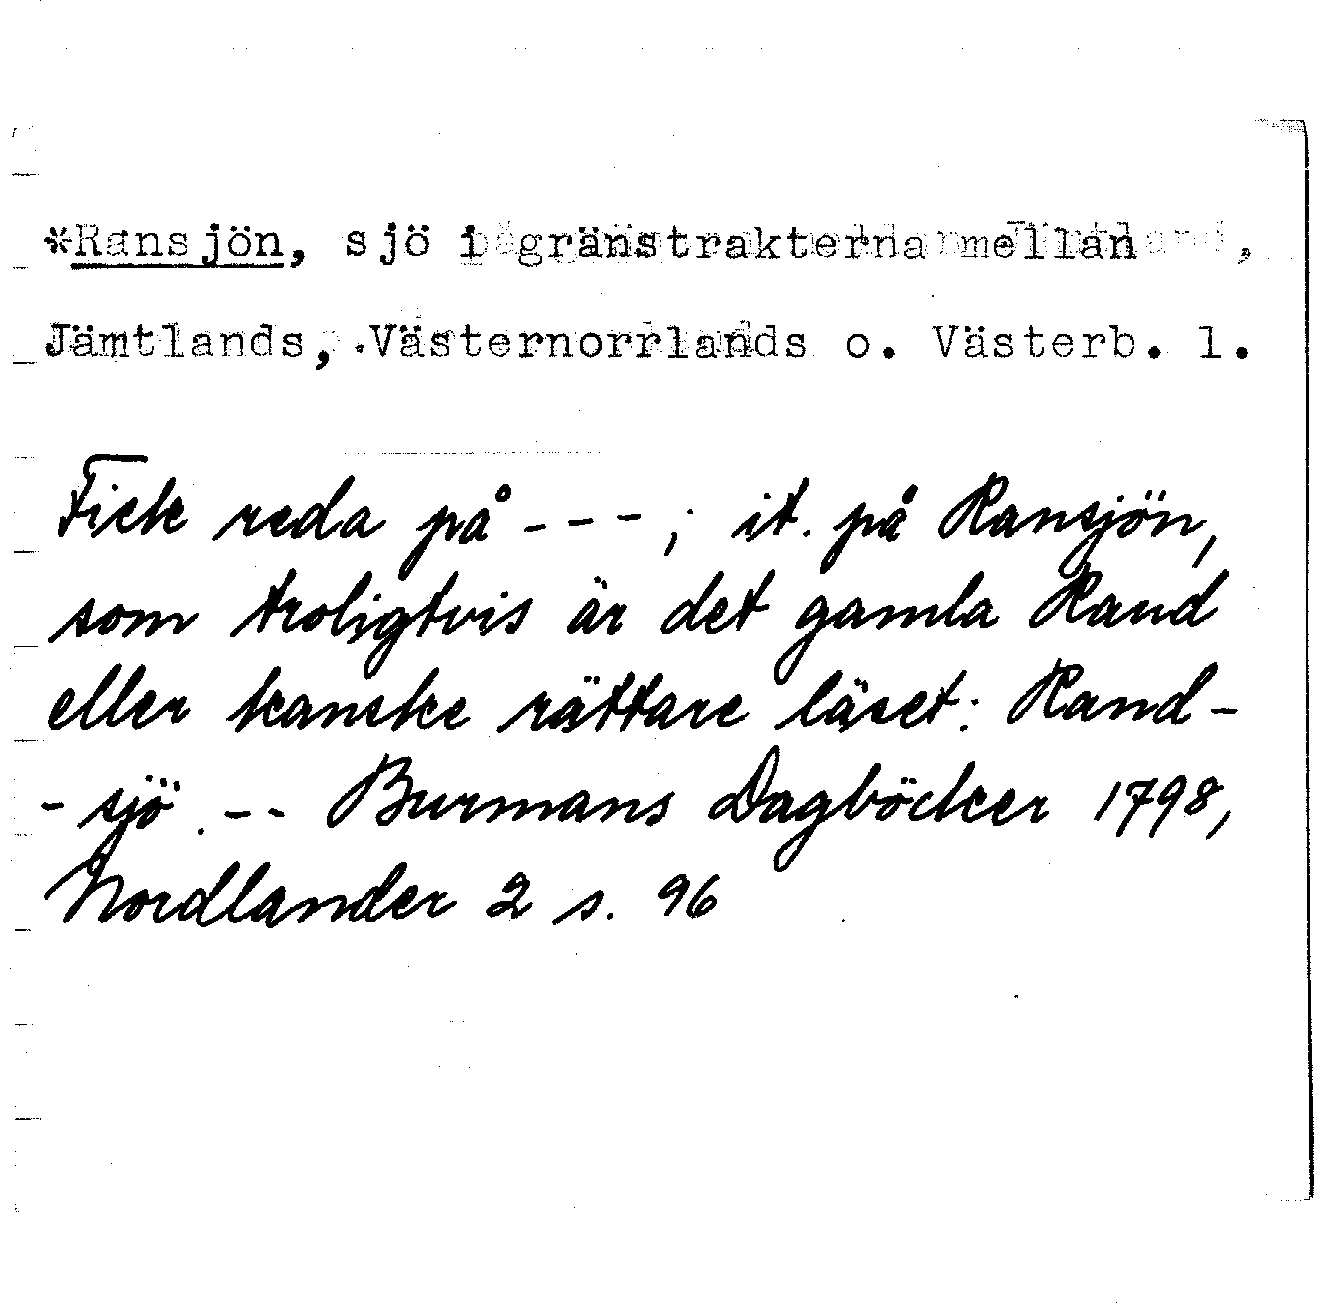 *Ransjön, sjö i gränstrakterna mellan
Jämtlands, Västernorrlands o. Västerb. l.
Fick reda på - - - ; it. på Ransjön,
som troligtvis är det gamla Rand
eller kanske rättare läset: Rand-
- sjö. -- Burmans Dagböcker 1798,
Nordlander 2 s. 96